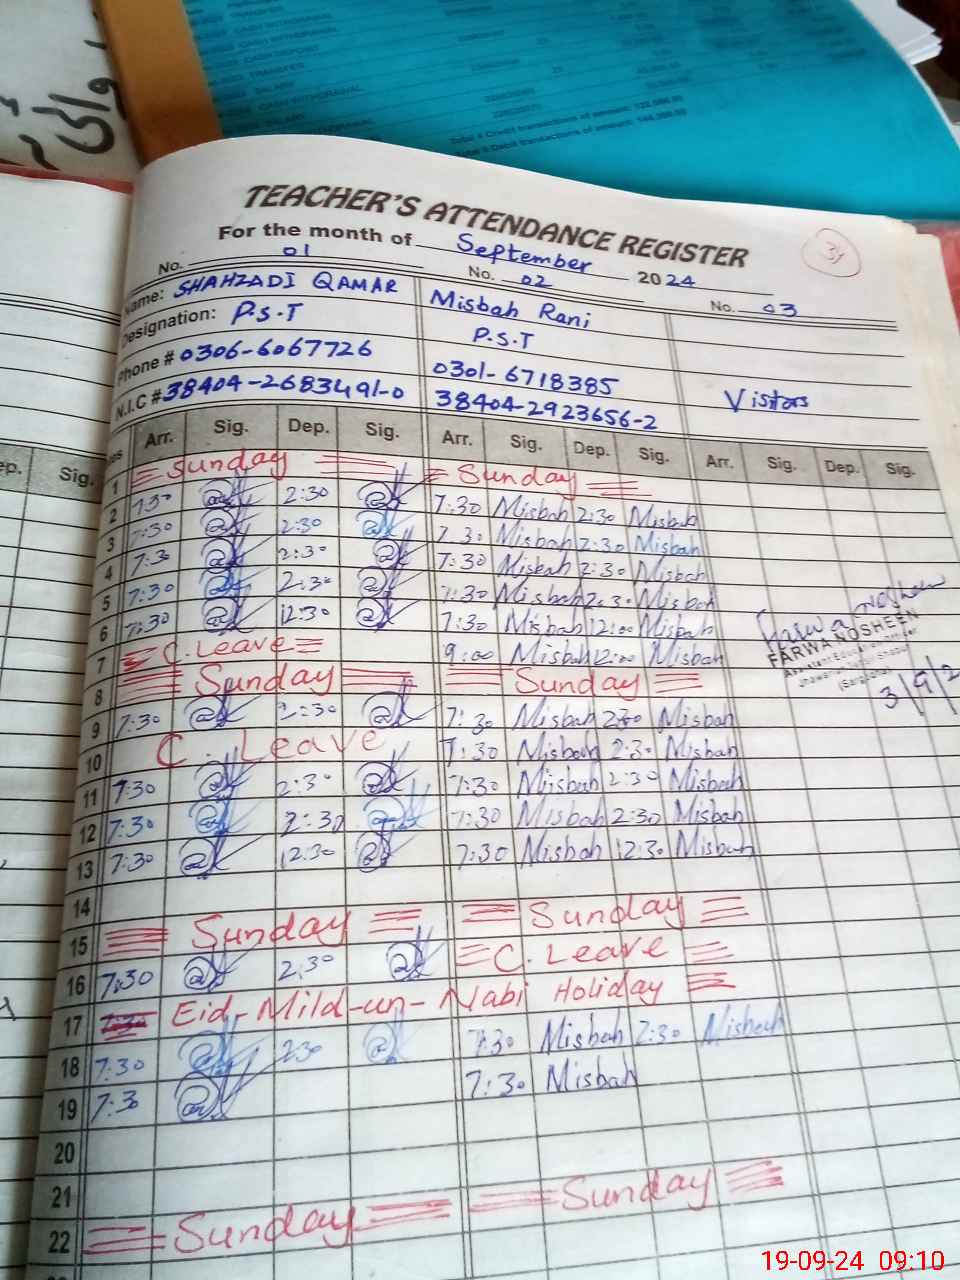 CASH WITHDRAWAL
TRANSFER
SALARY
CASH WITHDRAWAL
Total 4 Credit transactions of amount:
Total 5 Debit transactions of amount:
TEACHER'S ATTENDANCE REGISTER
31
For the month of September 2024
No. 01 No. 02 No. 03
Name: SHAHZADI QAMAR Misbah Rani
Designation: P.S.T P.S.T
Phone # 0306-6067726 0301-6718385
N.I.C # 38404-2683491-0 38404-2923656-2 Visitors
Arr. Sig. Dep. Sig. Arr. Sig. Dep. Sig. Arr. Sig. Dep. Sig.
ep. Sig.
1 Sunday Sunday
2 7:30 2:30 7:30 Misbah 2:30 Misbah
3 7:30 2:30 7:30 Misbah 2:30 Misbah
4 7:30 2:30 7:30 Misbah 2:30 Misbah
5 7:30 2:30 7:30 Misbah 2:30 Misbah
6 7:30 12:30 7:30 Misbah 12:00 Misbah
7 C.Leave 9:00 Misbah 12:00 Misbah
FARWA NOSHEEN
3/9/2
8 Sunday Sunday
9 7:30 2:30 7:30 Misbah 2:30 Misbah
10 C. Leave 7:30 Misbah 2:30 Misbah
11 7:30 2:30 7:30 Misbah 2:30 Misbah
12 7:30 2:30 7:30 Misbah 2:30 Misbah
13 7:30 12:30 7:30 Misbah 12:30 Misbah
14
15 Sunday Sunday
16 7:30 2:30 C. Leave
17 Eid-Mild-un-Nabi Holiday
18 7:30 2:30 7:30 Misbah 2:30 Misbah
19 7:30 7:30 Misbah
20
21
22 Sunday Sunday
19-09-24 09:10